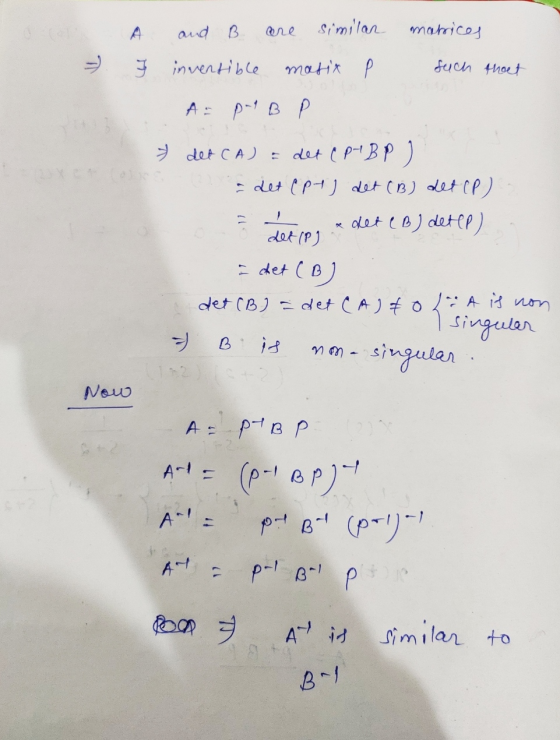 A and B are similar matrices
⇒ ∃ invertible matix P such that
A = P⁻¹ B P
⇒ det(A) = det(P⁻¹BP)
= det(P⁻¹) det(B) det(P)
= 1/det(P) × det(B) det(P)
= det(B)
det(B) = det(A) ≠ 0 {∵ A is non singular
⇒ B is non-singular.
Now
A = P⁻¹ B P
A⁻¹ = (P⁻¹ B P)⁻¹
A⁻¹ = P⁻¹ B⁻¹ (P⁻¹)⁻¹
A⁻¹ = P⁻¹ B⁻¹ P
⇒ A⁻¹ is similar to
B⁻¹